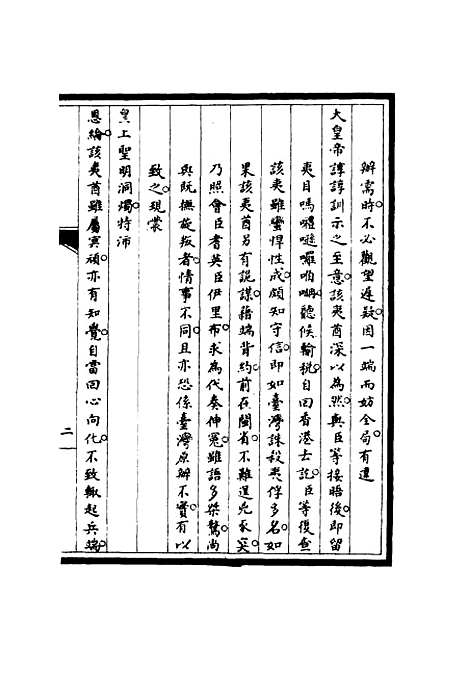 辦需時不必觀望遲疑因一端而妨全局有違
大皇帝諄諄訓示之至意該夷酋深以為然與臣等接晤後即留
夷目嗎囇㘉囉咱㖏聽候輸稅自回香港去訖臣等復查
該夷雖蠻悍性成頗知守信即如臺灣誅殺夷俘多名如
果該夷酋另有詭謀藉端背約前在閩省不難逞兇豕突
乃照會臣耆英臣伊里布求為代奏伸冤雖語多桀驁尚
與既撫旋叛者情事不同且亦恐係臺灣原辦不實有以
致之現蒙
皇上聖明洞燭特沛
恩綸該夷酋雖屬冥頑亦有知覺自當回心向化不致輒起兵端
二